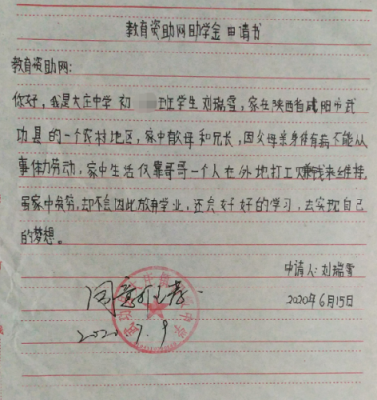 教育资助网助学金申请书
教育资助网:
你好,我是大庄中学初 班学生刘瑞雪,家在陕西省咸阳市武
功县的一个农村地区,家中有父母和兄长,因父母亲身体有病不能从
事体力劳动,家中生活仅靠哥哥一个人在外地打工赚钱来维持。
虽家中贫穷,却不会因此放弃学业,还会好好的学习,去实现自己
的梦想。
申请人:刘瑞雪
2020年6月15日
同意
2020.7.9